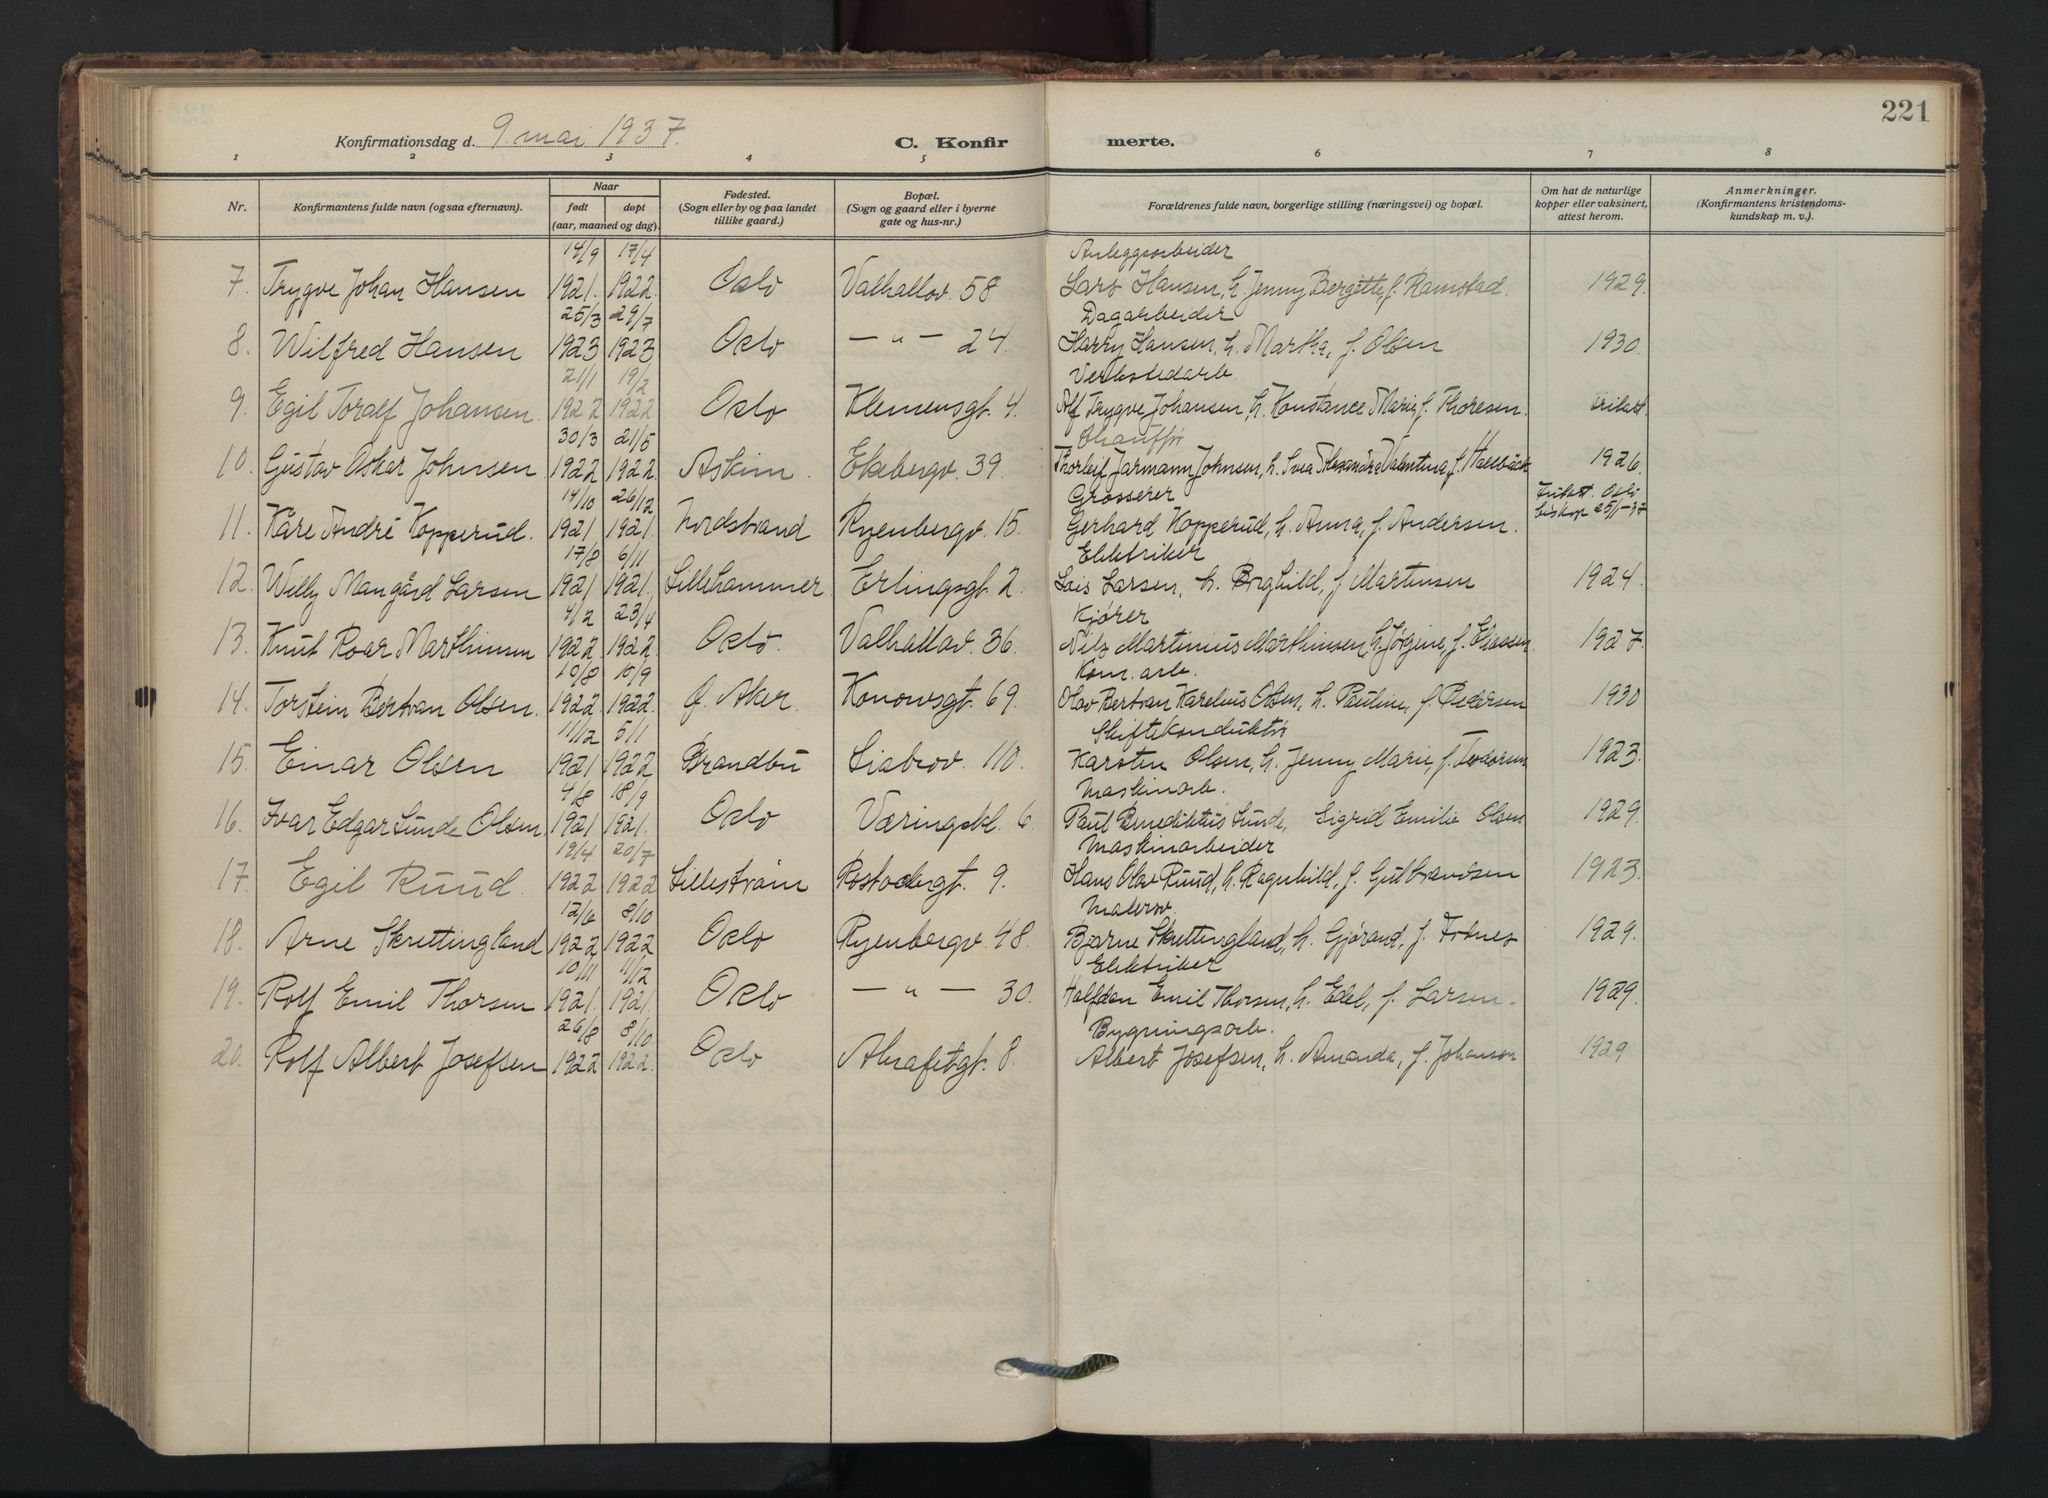 221
Konfirmationsdag d. 9. mai 1937. C. Konfir merte.
1 2 3 4 5 6 7 8
Nr. Konfirmantens fulde navn (ogsaa efternavn). Naar født døpt (aar, maaned og dag). Fødested. (Sogn eller by og paa landet tillike gaard.) Bopæl. (Sogn og gaard eller i byerne gate og hus-nr.) Forældrenes fulde navn, borgerlige stilling (næringsvei) og bopæl. Om hat de naturlige kopper eller vaksinert, attest herom. Anmerkninger. (Konfirmantens kristendoms-kundskap m. v.).
14/9 17/4 Anleggsarbeider
7. Trygve Johan Hansen 1921. 1922. Oslo Valhallav. 58 Lars Hansen, h. Jenny Bergitte, f. Ramstad. 1929.
25/3 29/7 Dagarbeider
8. Wilfred Hansen 1923 1923 Oslo — " — 24. Harry Hansen, h. Martha, f. Olsen 1930.
21/1 19/2 Verkstedarb.
9. Egil Toralf Johansen. 1922 1922 Oslo Klemensgt. 4. Alf Trygve Johansen, h. Konstance Marie f. Thoresen.
30/3 21/5 Chauffør
10. Gustav Oskar Johnsen 1922 1922. Askim. Ekebergv. 39. Thorleif Jarmann Johnsen, h. Svea Alexandra Valentina, f. 1926.
14/10 26/12 Grosserer Fritatt. Oslo
11. Kåre André Kopperud. 1921 1921. Nordstrand Ryenbergv. 15. Gerhard Kopperud, h. Anna, f. Andersen. biskop 25/1-37
17/8 6/11 Elektriker
12. Willy Mangård Larsen 1921 1921. Lillehammer Erlingsgt. 2. Larsen, h. Borghild, f. Martinsen 1924.
4/2 23/4 Kjører
13. Knut Roar Marthinsen 1922 1922. Oslo. Valhallav. 36. Nils Martinius Marthinsen, h. Jørgine, f. Eliassen. 1927.
10/8 10/9 Kom. arb.
14. Torstein Bertran Olsen. 1922 1922. Ø. Aker. Konowsgt. 69. Olav Bertran Karelius Olsen, h. Pauline, f. Pedersen 1930
11/12 5/1 Skiftekonduktør
15. Einar Olsen 1921 1922 Brandbu Liabrov. 110. Karsten Olsen, h. Jenny Marie, f. Teodorsen 1923.
4/8 18/9 Maskinarb.
16. Ivar Edgar Sunde Olsen 1921 1921. Oslo Væringskl. 6 Paul Benediktus Sunde, Sigrid Emilie Olsen 1929.
19/4 20/7 Maskinarbeider
17. Egil Ruud. 1922 1922 Lillestrøm Rostockgt. 9. Hans Olav Ruud, h. Ragnhild, f. Gulbrandsen 1923.
12/6 8/10 Malersv.
18. Arne Skrettingland 1922 1922 Oslo Ryenbergv. 48. Bjarne Skrettingland, h. Gjørand, f. Fotnes 1929.
10/11 11/12 Elektriker
19. Rolf Emil Thorsen 1921. 1921. Oslo — " — 30. Halfdan Emil Thorsen, h. Edel, f. Larsen. 1929.
26/8 8/10 Bygningsarb.
20. Rolf Albert Josefsen 1922 1922. Oslo Akrafetgt. 8. Albert Josefsen, h. Amanda, f. Johanson 1929